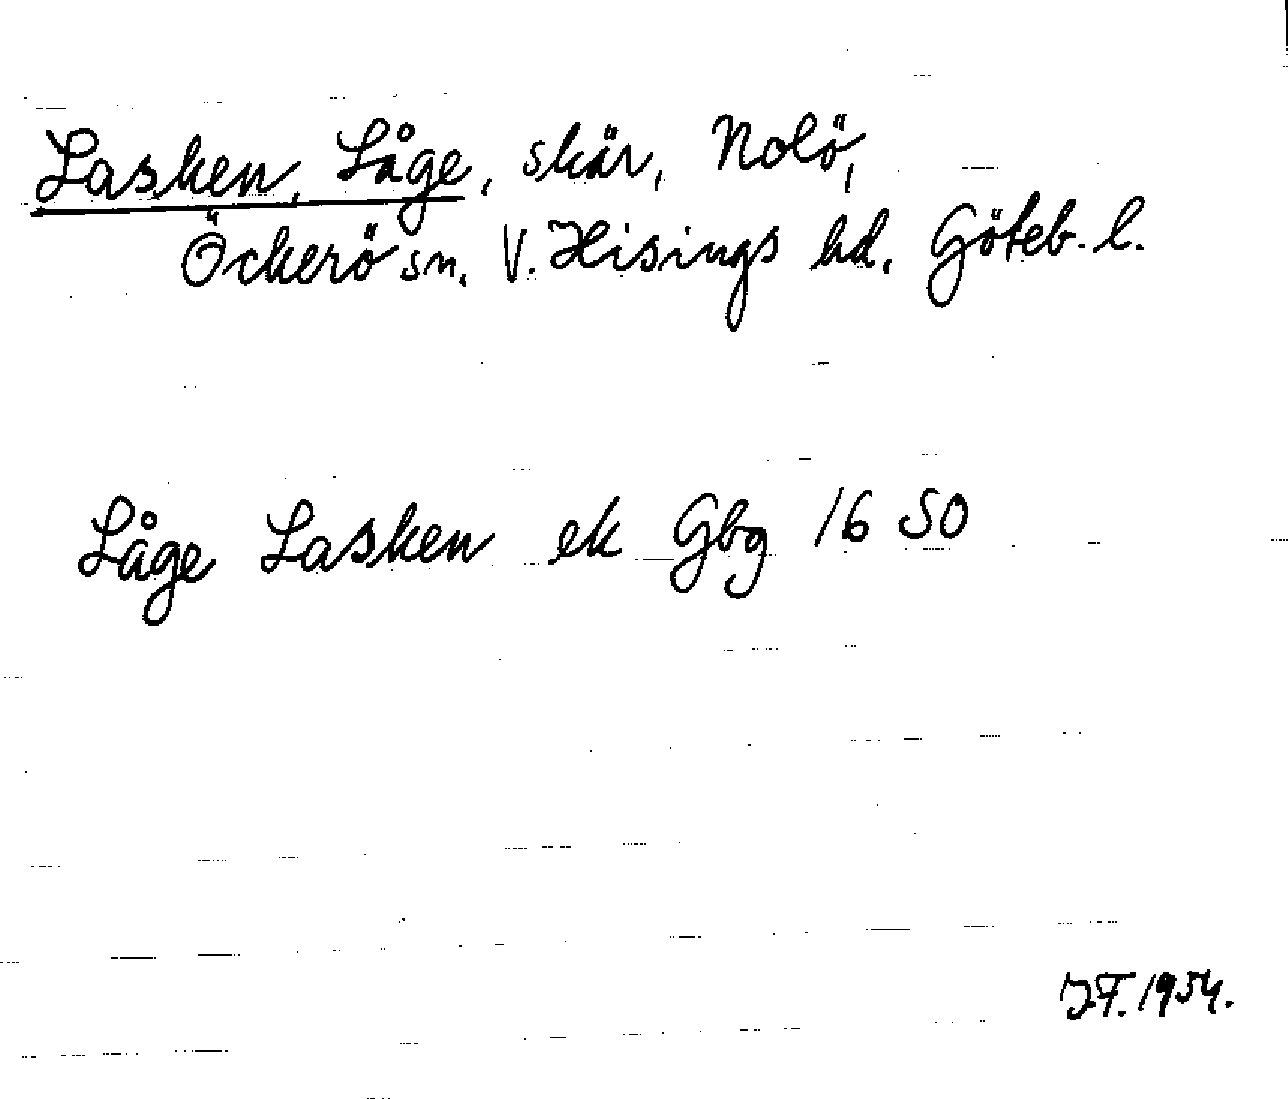 Lasken, Låge, skär, Nolö,
Öckerö sn. V. Hisings hd. Göteb. l.
Låge Lasken ek Gbg 16 SO
JF. 1934.